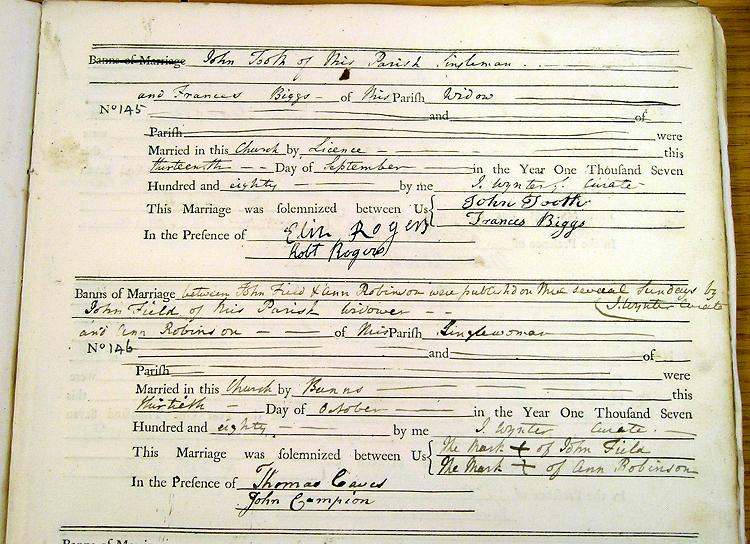 Banns of Marriage John Tooth of this Parish Singleman
and Frances Biggs of this Parish Widow
No 145
and of
Parish were
Married in this Church by Licence this
thirteenth Day of September in the Year One Thousand Seven
Hundred and eighty by me J. Wynter Curate
This Marriage was solemnized between Us { John Tooth
Frances Biggs
In the Presence of Eliz Rogers
Robt Rogers
Banns of Marriage between John Field & Ann Robinson were published on three several Sundays by
J. Wynter Curate
John Field of this Parish Widower
and Ann Robinson of this Parish Singlewoman
No 146
and of
Parish were
Married in this Church by Banns this
thirtieth Day of October in the Year One Thousand Seven
Hundred and eighty by me J. Wynter Curate
This Marriage was solemnized between Us { The Mark + of John Field
The Mark + of Ann Robinson
In the Presence of Thomas Eaves
John Campion
Banns of Marriage